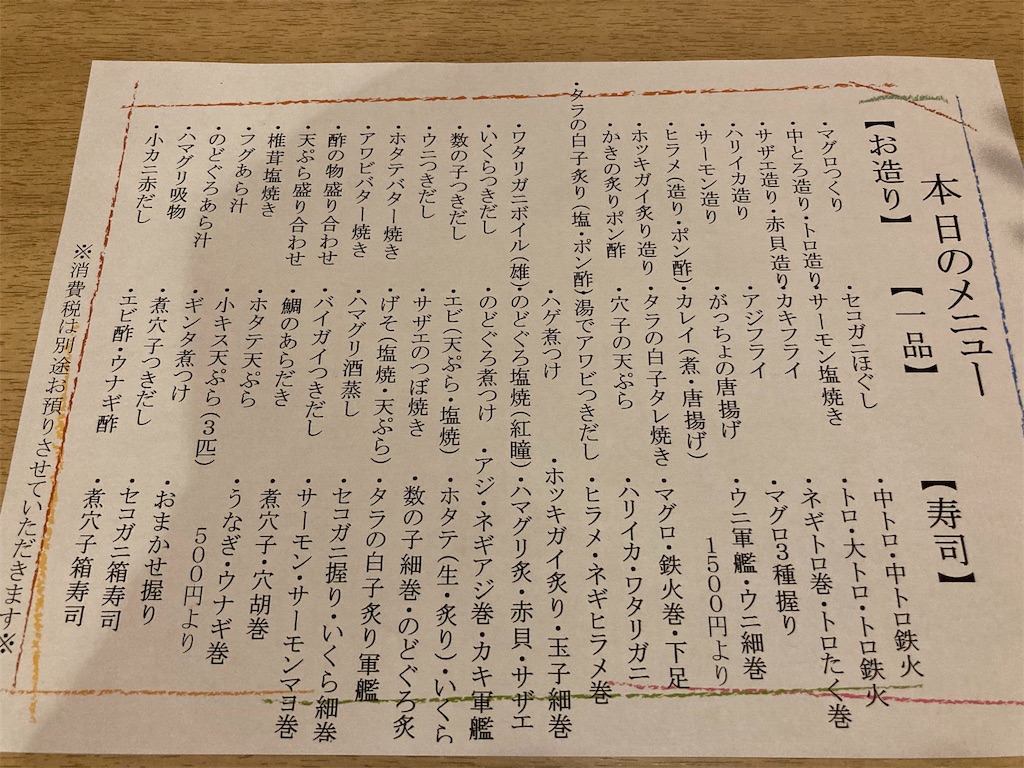 本日のメニュー
【お造り】
・マグロつくり
・中とろ造り・トロ造り
・サザエ造り・赤貝造り
・ハリイカ造り
・サーモン造り
・ヒラメ(造り・ポン酢)
・ホッキガイ炙り造り
・かきの炙りポン酢
・タラの白子炙り(塩・ポン酢)
・ワタリガニボイル(雄)
・いくらつきだし
・数の子つきだし
・ウニつきだし
・ホタテバター焼き
・アワビバター焼き
・酢の物盛り合わせ
・天ぷら盛り合わせ
・椎茸塩焼き
・フグあら汁
・のどぐろあら汁
・ハマグリ吸物
・小カニ赤だし
【一品】
・セコガニほぐし
・サーモン塩焼き
・カキフライ
・アジフライ
・がっちょの唐揚げ
・カレイ(煮・唐揚げ)
・タラの白子タレ焼き
・穴子の天ぷら
湯でアワビつきだし
・ハゲ煮つけ
・のどぐろ塩焼(紅瞳)
・のどぐろ煮つけ
・エビ(天ぷら・塩焼)
・サザエのつぼ焼き
・げそ(塩焼・天ぷら)
・ハマグリ酒蒸し
・バイガイつきだし
・鯛のあらだき
・ホタテ天ぷら
・小キス天ぷら(3匹)
・ギンタ煮つけ
・煮穴子つきだし
・エビ酢・ウナギ酢
【寿司】
・中トロ・中トロ鉄火
・トロ・大トロ・トロ鉄火
・ネギトロ巻・トロたく巻
・マグロ3種握り
・ウニ軍艦・ウニ細巻
1500円より
・マグロ・鉄火巻・下足
・ハリイカ・ワタリガニ
・ヒラメ・ネギヒラメ巻
・ホッキガイ炙り・玉子細巻
・ハマグリ炙・赤貝・サザエ
・アジ・ネギアジ巻・カキ軍艦
・ホタテ(生・炙り)・いくら
・数の子細巻・のどぐろ炙
・タラの白子炙り軍艦
・セコガニ握り・いくら細巻
・サーモン・サーモンマヨ巻
・煮穴子・穴胡巻
・うなぎ・ウナギ巻
500円より
・おまかせ握り
・セコガニ箱寿司
・煮穴子箱寿司
※消費税は別途お預りさせていただきます※